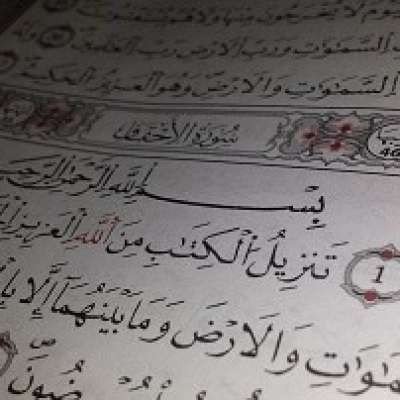 لَا يُخْرَجُونَ مِنْهَا وَلَا هُمْ
السَّمَٰوَٰتِ وَرَبِّ الْأَرْضِ رَبِّ الْعَٰلَمِينَ
السَّمَٰوَٰتِ وَالْأَرْضِ وَهُوَ الْعَزِيزُ الْحَكِيمُ
سُورَةُ الْأَحْقَافِ
46
بِسْمِ اللَّهِ الرَّحْمَٰنِ الرَّحِيمِ
1 تَنزِيلُ الْكِتَٰبِ مِنَ اللَّهِ الْعَزِيزِ
وَالْأَرْضَ وَمَا بَيْنَهُمَا إِلَّا